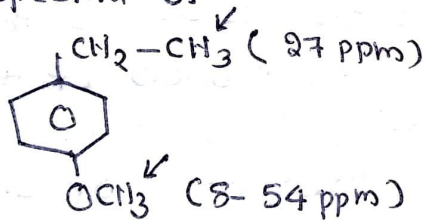 CH₂-CH₃ ( 27 ppm )
OCH₃ ( 8- 54 ppm )